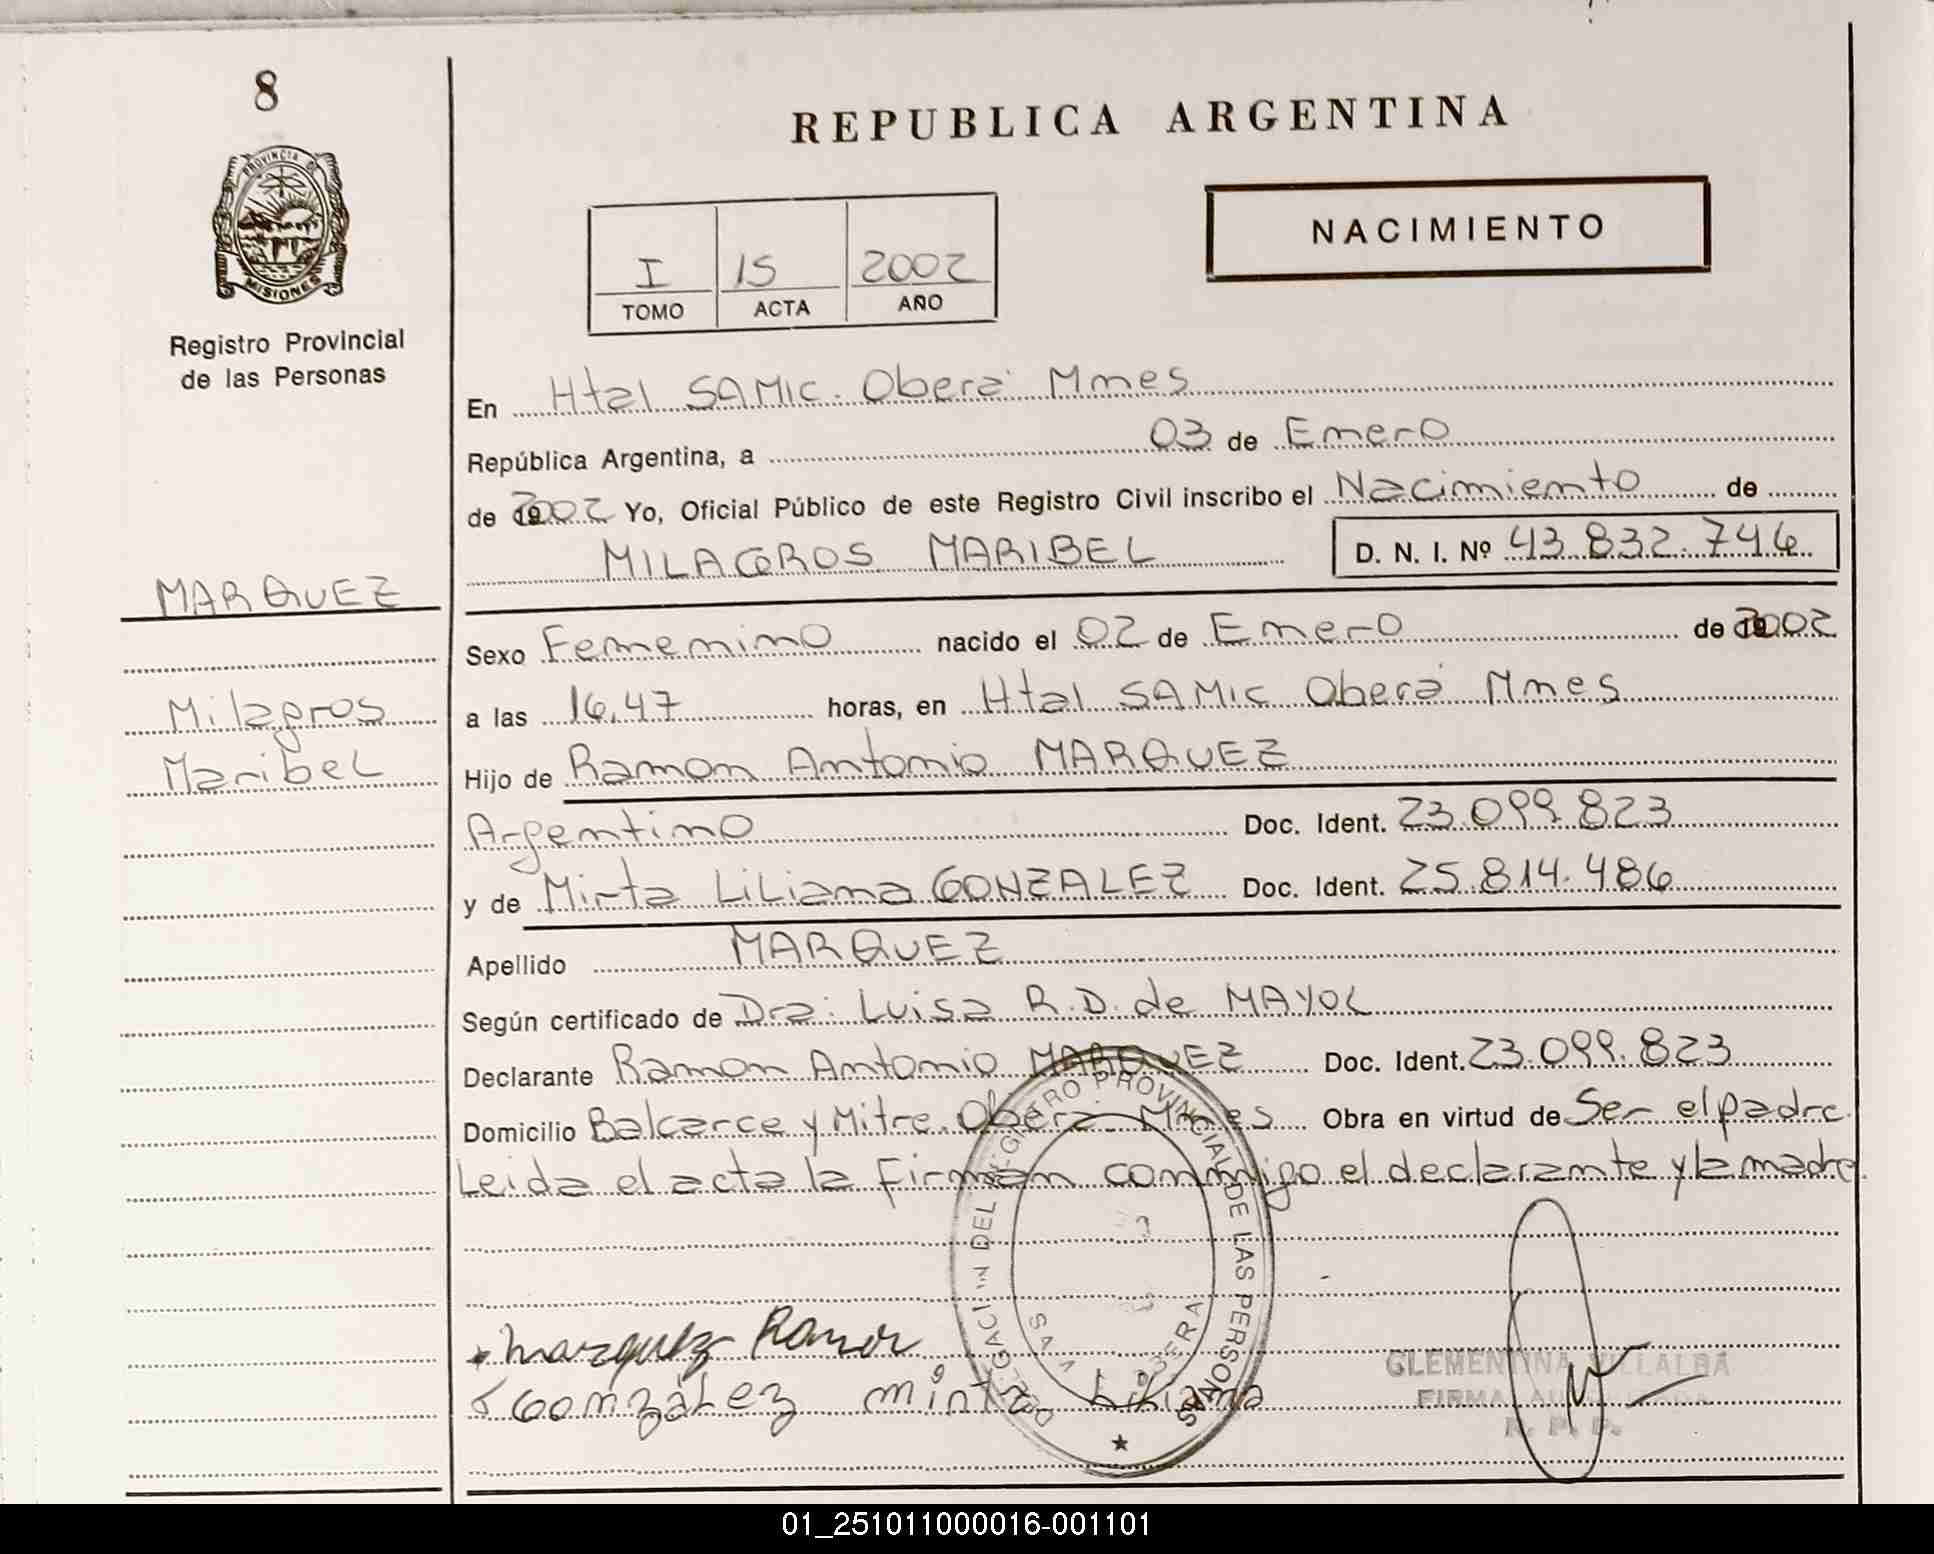 8
REPUBLICA ARGENTINA
PROVINCIA DE
MISIONES
Registro Provincial
de las Personas
NACIMIENTO
I 15 2002
TOMO ACTA AÑO
En Htal SAMIC. Oberá Mnes
República Argentina, a 03 de Enero
de 2002 Yo, Oficial Público de este Registro Civil inscribo el Nacimiento de
MILAGROS MARIBEL D. N. I. Nº 43.832.746
MARQUEZ
Milagros
Maribel
Sexo Femenino nacido el 02 de Enero de 2002
a las 16,47 horas, en Htal SAMIC Oberá Mnes
Hijo de Ramon Antonio MARQUEZ
Argentino Doc. Ident. 23.099.823
y de Mirta Liliana GONZALEZ Doc. Ident. 25.814.486
Apellido MARQUEZ
Según certificado de Dra: Luisa R.D. de MAYOL
Declarante Ramon Antonio MARQUEZ Doc. Ident. 23.099.823
Domicilio Balcarce y Mitre. Oberá. Mnes Obra en virtud de Ser el padre.
Leida el acta la firman conmigo el declarante y la madre.
Marquez Ramon
Gonzàlez mirta Liliana
PROVINCIAL DE LAS PERSONAS
CLEMENTINA VILLALBA
FIRMA AUTORIZADA
R. P. P.
01_251011000016-001101